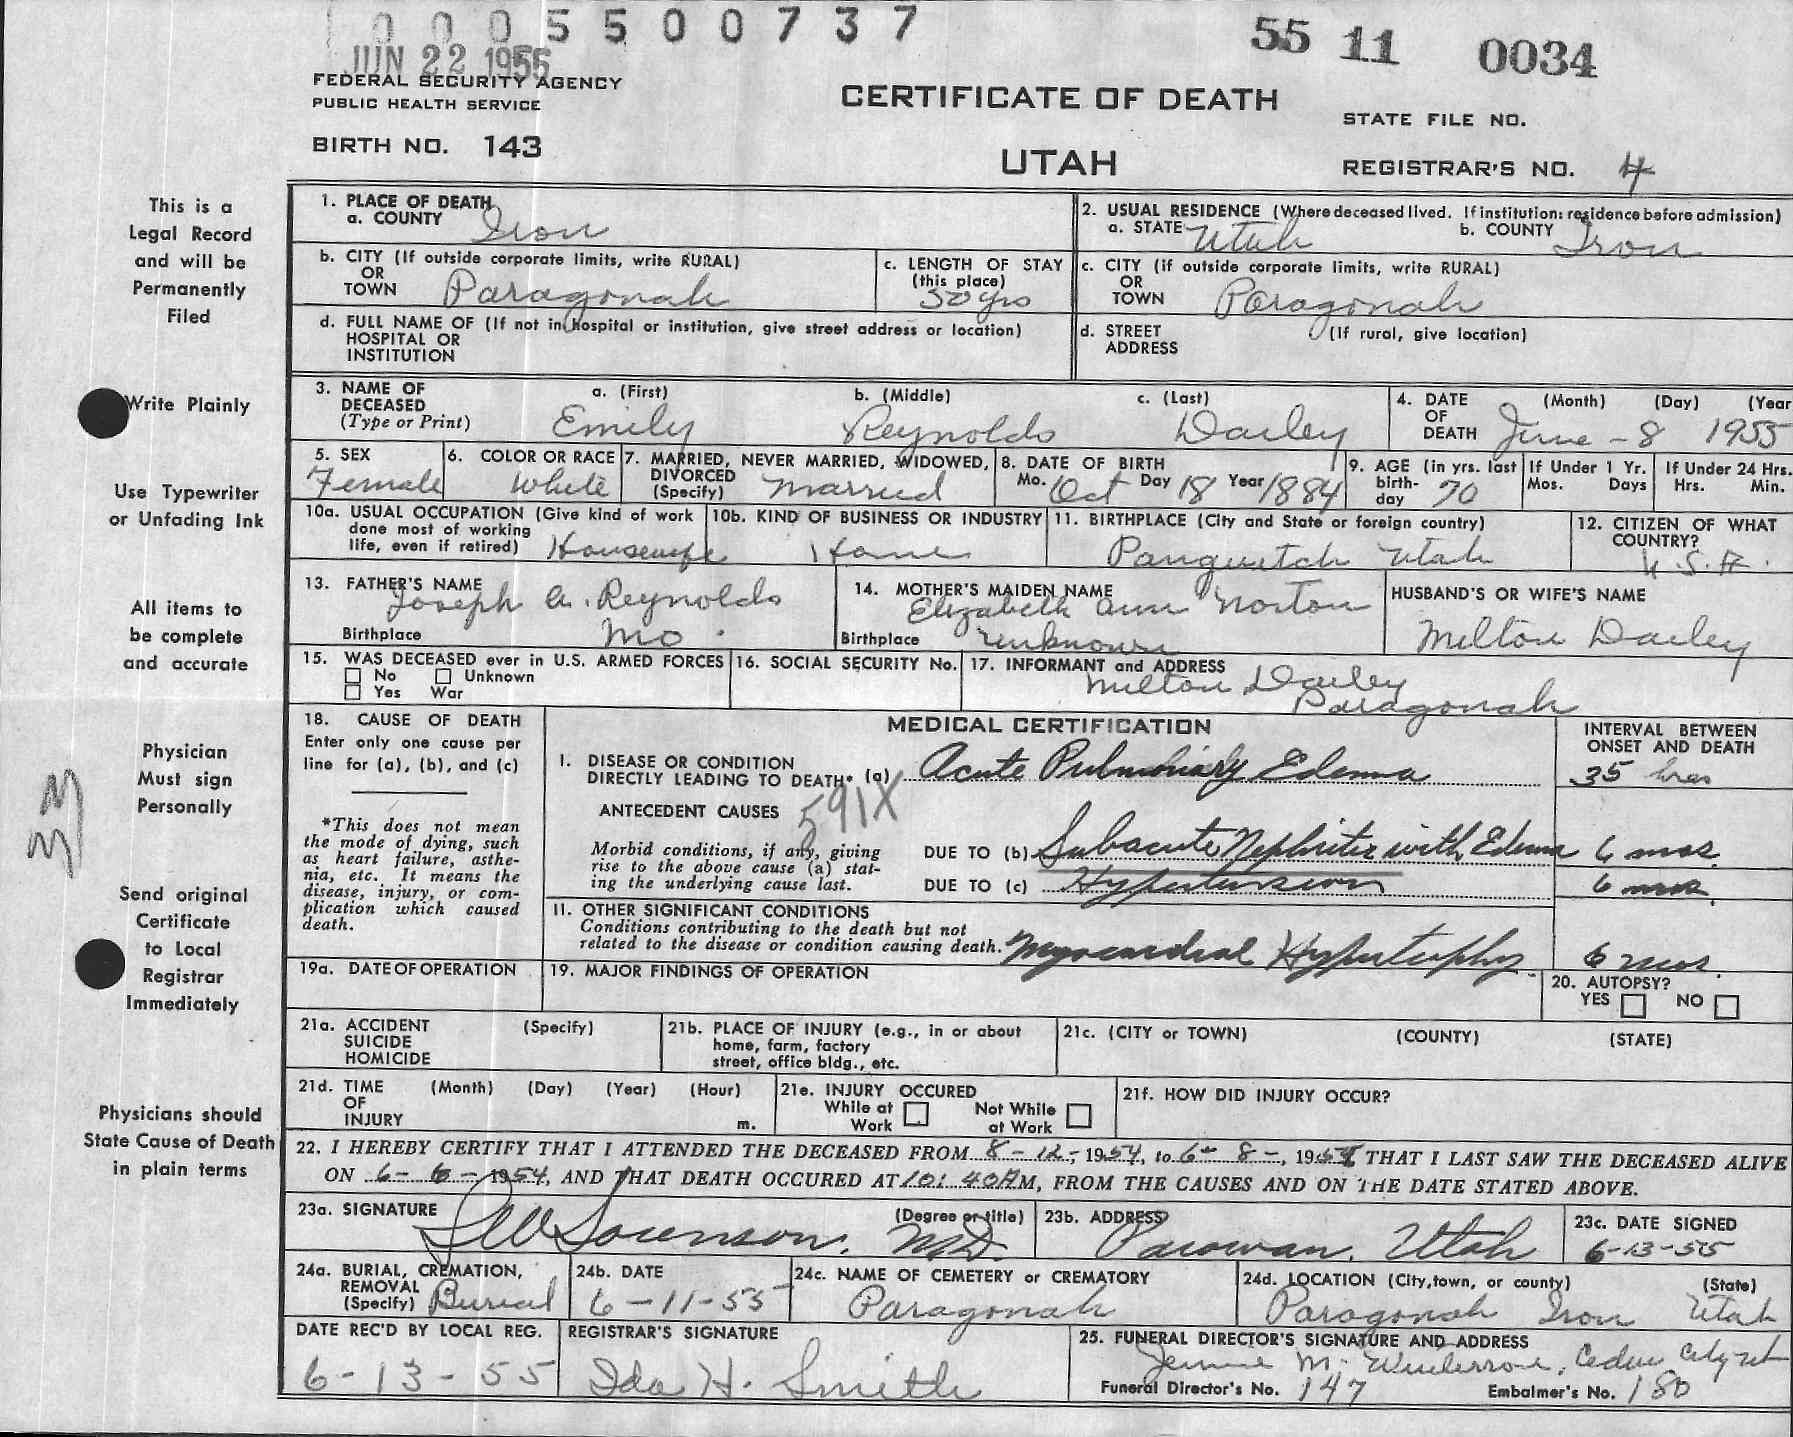 0005500737
JUN 22 1955
55 11 0034
FEDERAL SECURITY AGENCY
PUBLIC HEALTH SERVICE
CERTIFICATE OF DEATH
STATE FILE NO.
BIRTH NO. 143
UTAH
REGISTRAR'S NO. 4
This is a
Legal Record
and will be
Permanently
Filed
Write Plainly
Use Typewriter
or Unfading Ink
All items to
be complete
and accurate
Physician
Must sign
Personally
Send original
Certificate
to Local
Registrar
Immediately
Physicians should
State Cause of Death
in plain terms
1. PLACE OF DEATH
a. COUNTY Iron
2. USUAL RESIDENCE (Where deceased lived. If institution: residence before admission)
a. STATE Utah b. COUNTY Iron
b. CITY (If outside corporate limits, write RURAL)
OR
TOWN Paragonah
c. LENGTH OF STAY
(this place)
50 yrs
c. CITY (if outside corporate limits, write RURAL)
OR
TOWN Paragonah
d. FULL NAME OF (If not in hospital or institution, give street address or location)
HOSPITAL OR
INSTITUTION
d. STREET (If rural, give location)
ADDRESS
3. NAME OF DECEASED
(Type or Print)
a. (First) b. (Middle) c. (Last)
Emily Reynolds Dailey
4. DATE OF DEATH (Month) (Day) (Year
June - 8 1955
5. SEX
Female
6. COLOR OR RACE
White
7. MARRIED, NEVER MARRIED, WIDOWED,
DIVORCED
(Specify) Married
8. DATE OF BIRTH
Mo. Oct Day 18 Year 1884
9. AGE (in yrs. last
birth-
day 70
If Under 1 Yr.
Mos. Days
If Under 24 Hrs.
Hrs. Min.
10a. USUAL OCCUPATION (Give kind of work
done most of working
life, even if retired) Housewife
10b. KIND OF BUSINESS OR INDUSTRY
Home
11. BIRTHPLACE (City and State or foreign country)
Panguitch Utah
12. CITIZEN OF WHAT
COUNTRY?
U.S.A.
13. FATHER'S NAME
Joseph A. Reynolds
Birthplace Mo.
14. MOTHER'S MAIDEN NAME
Elizabeth Ann Norton
Birthplace Unknown
HUSBAND'S OR WIFE'S NAME
Milton Dailey
15. WAS DECEASED ever in U.S. ARMED FORCES
No Unknown
Yes War
16. SOCIAL SECURITY No.
17. INFORMANT and ADDRESS
Milton Dailey
Paragonah
18. CAUSE OF DEATH
Enter only one cause per
line for (a), (b), and (c)
*This does not mean
the mode of dying, such
as heart failure, asthe-
nia, etc. It means the
disease, injury, or com-
plication which caused
death.
MEDICAL CERTIFICATION
INTERVAL BETWEEN
ONSET AND DEATH
I. DISEASE OR CONDITION
DIRECTLY LEADING TO DEATH* (a) Acute Pulmonary Edema 35 hrs
ANTECEDENT CAUSES 591X
Morbid conditions, if any, giving
rise to the above cause (a) stat-
ing the underlying cause last.
DUE TO (b) Subacute Nephritis with Edema 6 mos.
DUE TO (c) Hypertension 6 mos.
II. OTHER SIGNIFICANT CONDITIONS
Conditions contributing to the death but not
related to the disease or condition causing death. Myocardial Hypertrophy 6 mos.
19a. DATE OF OPERATION
19. MAJOR FINDINGS OF OPERATION
20. AUTOPSY?
YES NO
21a. ACCIDENT (Specify)
SUICIDE
HOMICIDE
21b. PLACE OF INJURY (e.g., in or about
home, farm, factory
street, office bldg., etc.
21c. (CITY or TOWN) (COUNTY) (STATE)
21d. TIME (Month) (Day) (Year) (Hour)
OF
INJURY m.
21e. INJURY OCCURED
While at Work Not While at Work
21f. HOW DID INJURY OCCUR?
22. I HEREBY CERTIFY THAT I ATTENDED THE DECEASED FROM 8-12-, 1954, to 6-8-, 195 THAT I LAST SAW THE DECEASED ALIVE
ON 6-6-1954, AND THAT DEATH OCCURED AT 10:40AM, FROM THE CAUSES AND ON THE DATE STATED ABOVE.
23a. SIGNATURE (Degree or title)
Sorenson. MD.
23b. ADDRESS
Parowan, Utah
23c. DATE SIGNED
6-13-55
24a. BURIAL, CREMATION,
REMOVAL
(Specify) Burial
24b. DATE
6-11-55
24c. NAME OF CEMETERY or CREMATORY
Paragonah
24d. LOCATION (City, town, or county) (State)
Paragonah Iron Utah
DATE REC'D BY LOCAL REG.
6-13-55
REGISTRAR'S SIGNATURE
Ida H. Smith
25. FUNERAL DIRECTOR'S SIGNATURE AND ADDRESS
M. Cedar City Ut
Funeral Director's No. 147 Embalmer's No. 180